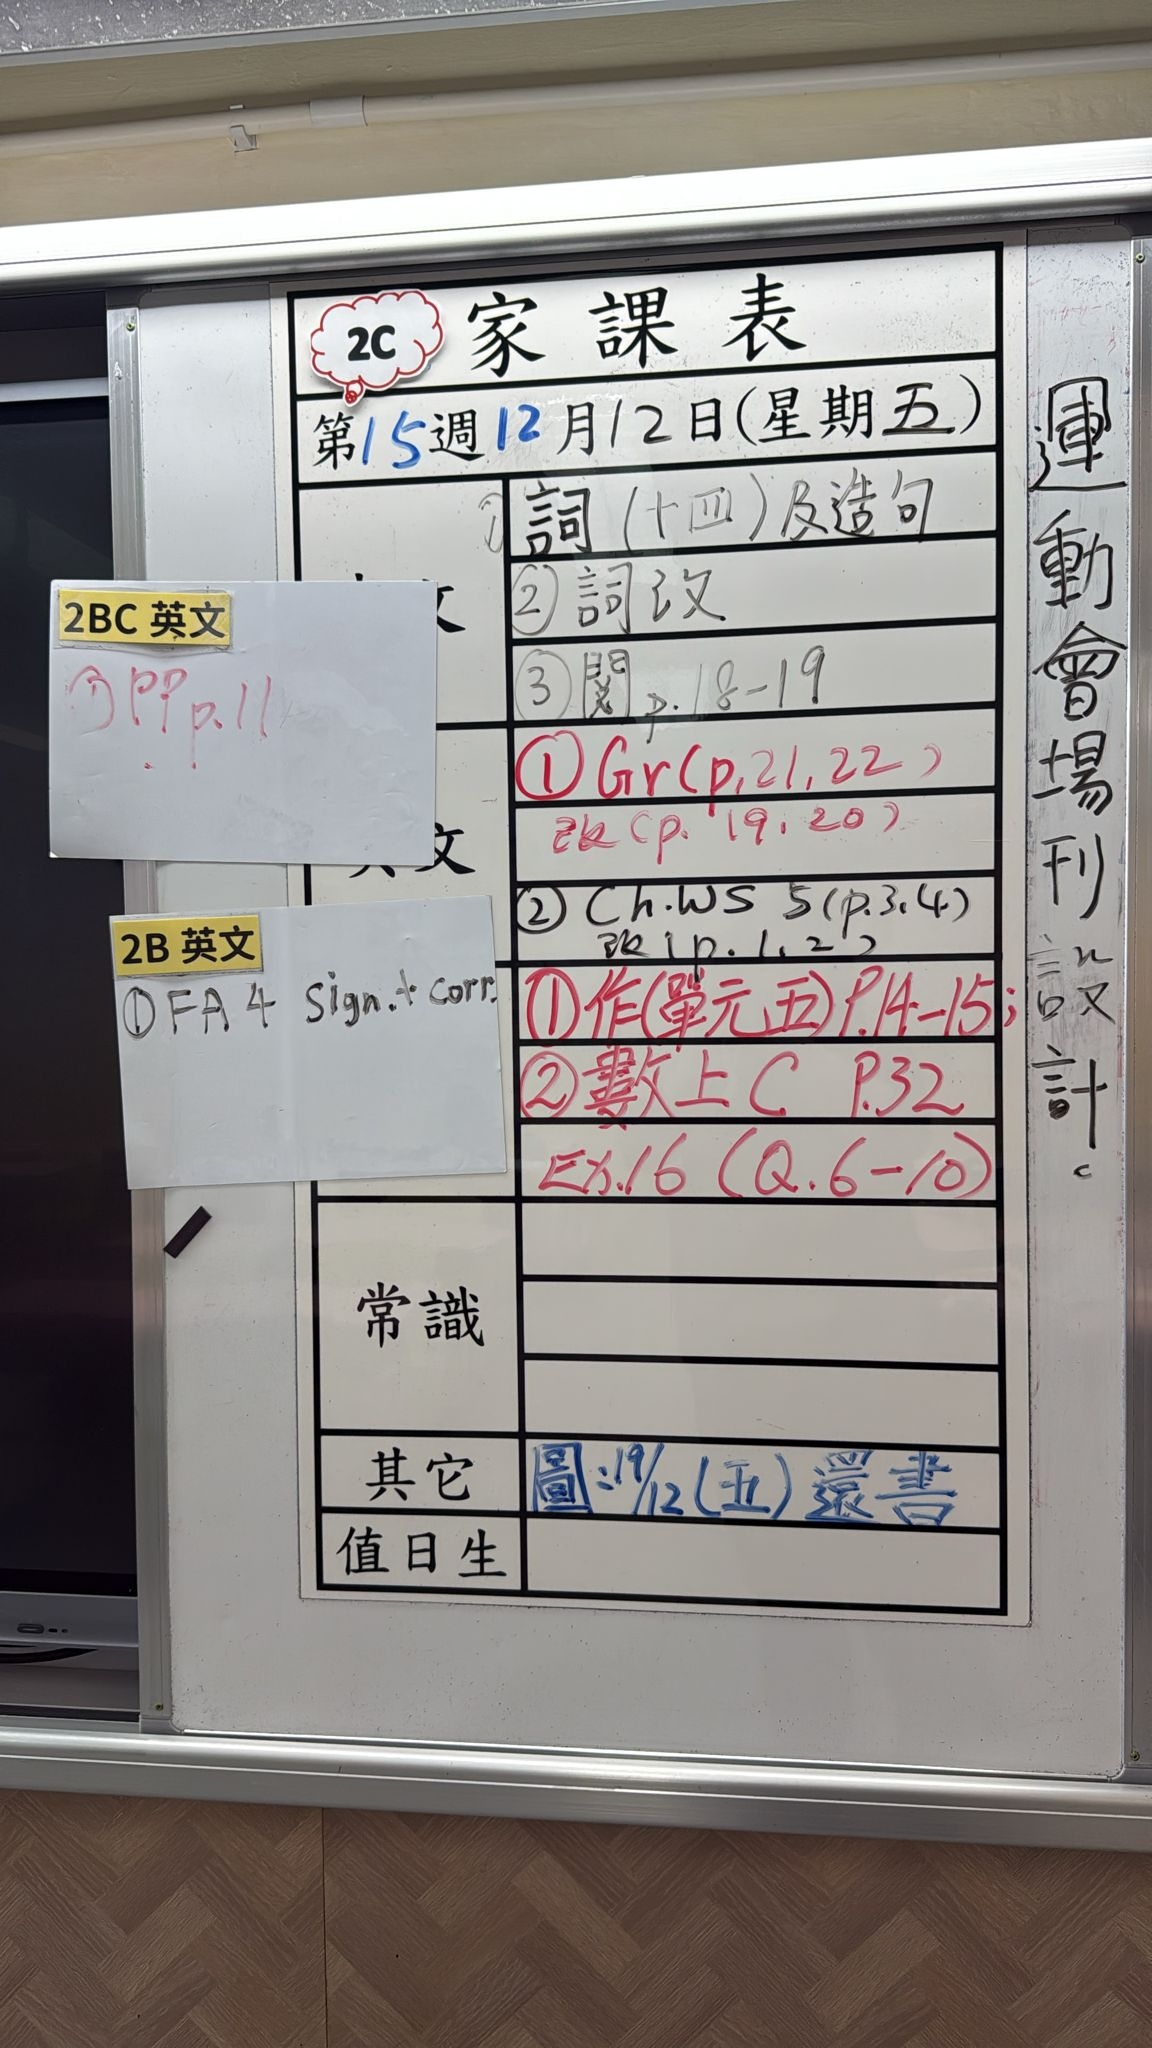 2C 家課表
第15週12月12日(星期五)
① 詞(十四)及造句
文 ② 詞改
③ 閱 p.18-19
2BC 英文
① PP p.11
文 ① Gr(p.21,22)
改(p. 19,20)
② Ch.WS 5(p.3,4)
改(p.1,2)
2B 英文
① FA 4 Sign.+ corr.
① 作(單元五)P.14-15;
② 數上C P.32
Ex.16 (Q.6-10)
常識
其它 圖:19/12(五)還書
值日生
運動會場刊設計。